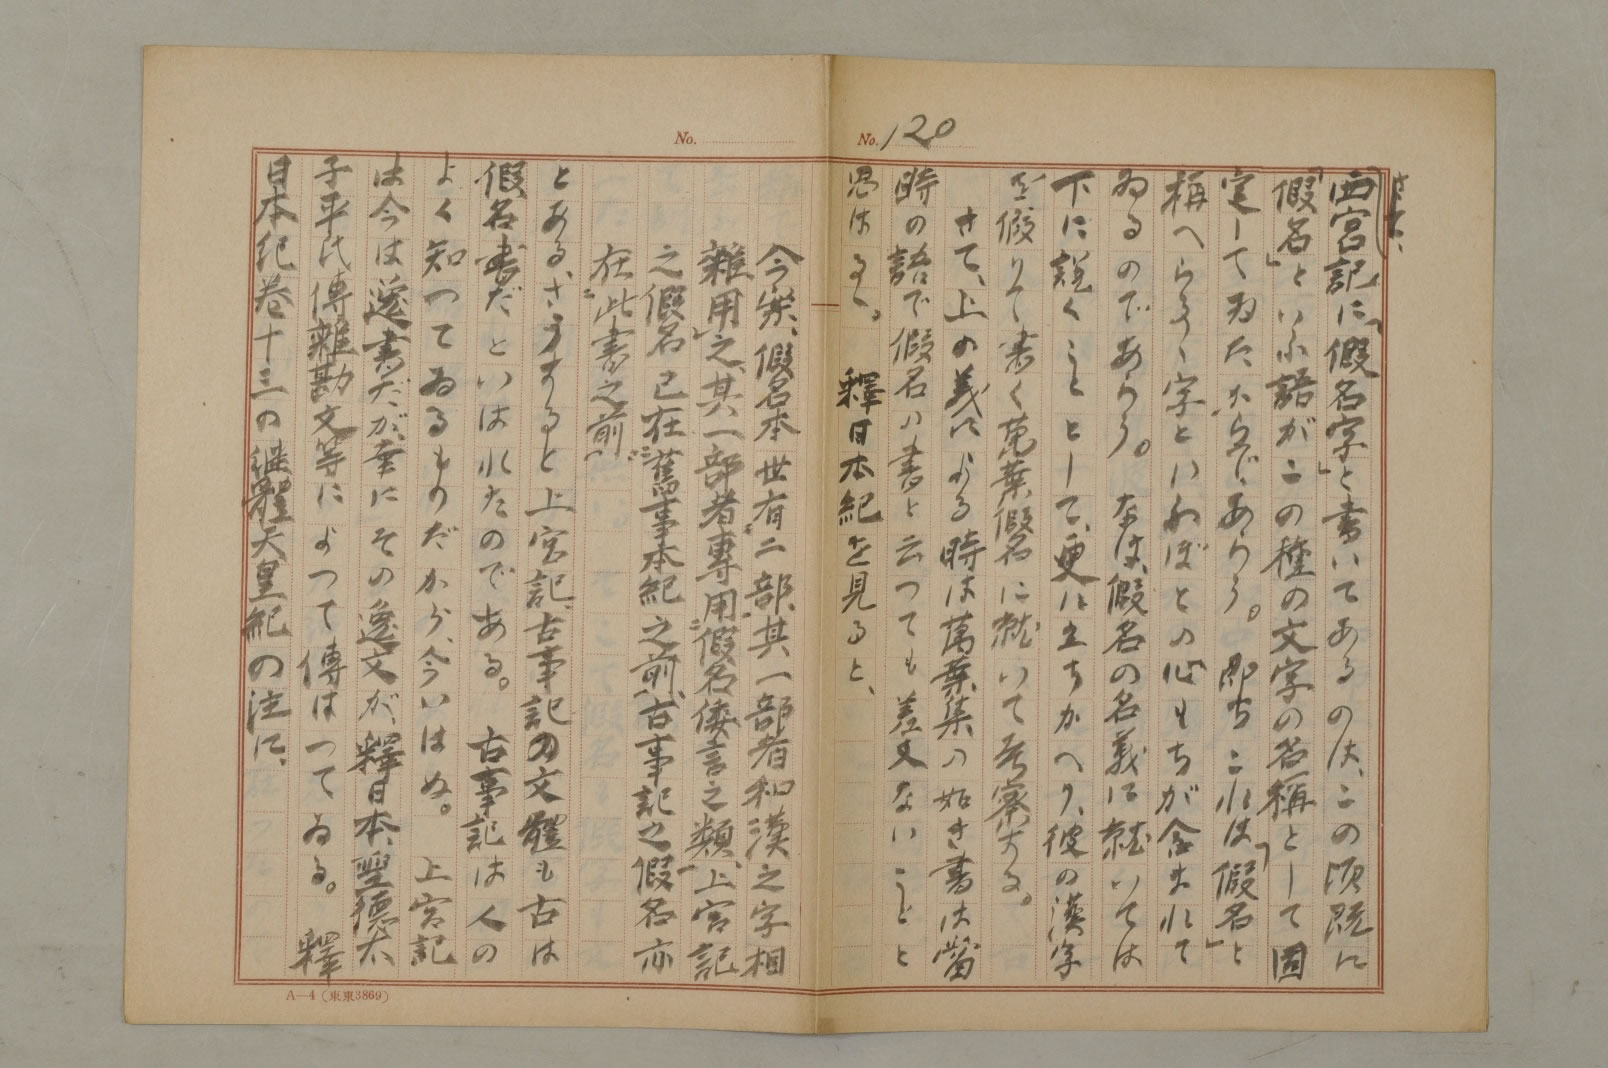 No. 120
さて、
西宮記に「假名字」と書いてあるのは、この頃既に
「假名」といふ語がこの種の文字の名稱として固
定してゐたからであらう。即ちこれは「假名」と
稱へらるゝ字といはぬばとの心もちが含まれて
ゐるのであらう。なほ、假名の名義に就いては
下に説くこととして、更に立ちかへり、彼の漢字
を假りて書く萬葉假名に就いて考察する。
さて、上の義による時は萬葉集の如き書は當
時の語で假名の書と云つても差支ないことと
思はるゝ。釋日本紀を見ると、
今案、假名本世有二部、其一部者和漢之字相
雜用之、其一部者專用假名倭言之類、上宮記
之假名已在舊事本紀之前、古事記之假名亦
在此書之前
とある、さうすると上宮記、古事記の文體も古は
假名書だといはれたのである。古事記は人の
よく知つてゐるものだから、今いはぬ。上宮記
は今は逸書だが、幸にその逸文が、釋日本、聖德太
子平氏傳雜勘文等によつて傳はつてゐる。釋
日本紀卷十三の繼體天皇紀の注に、
No.
A—4 (東東3869)